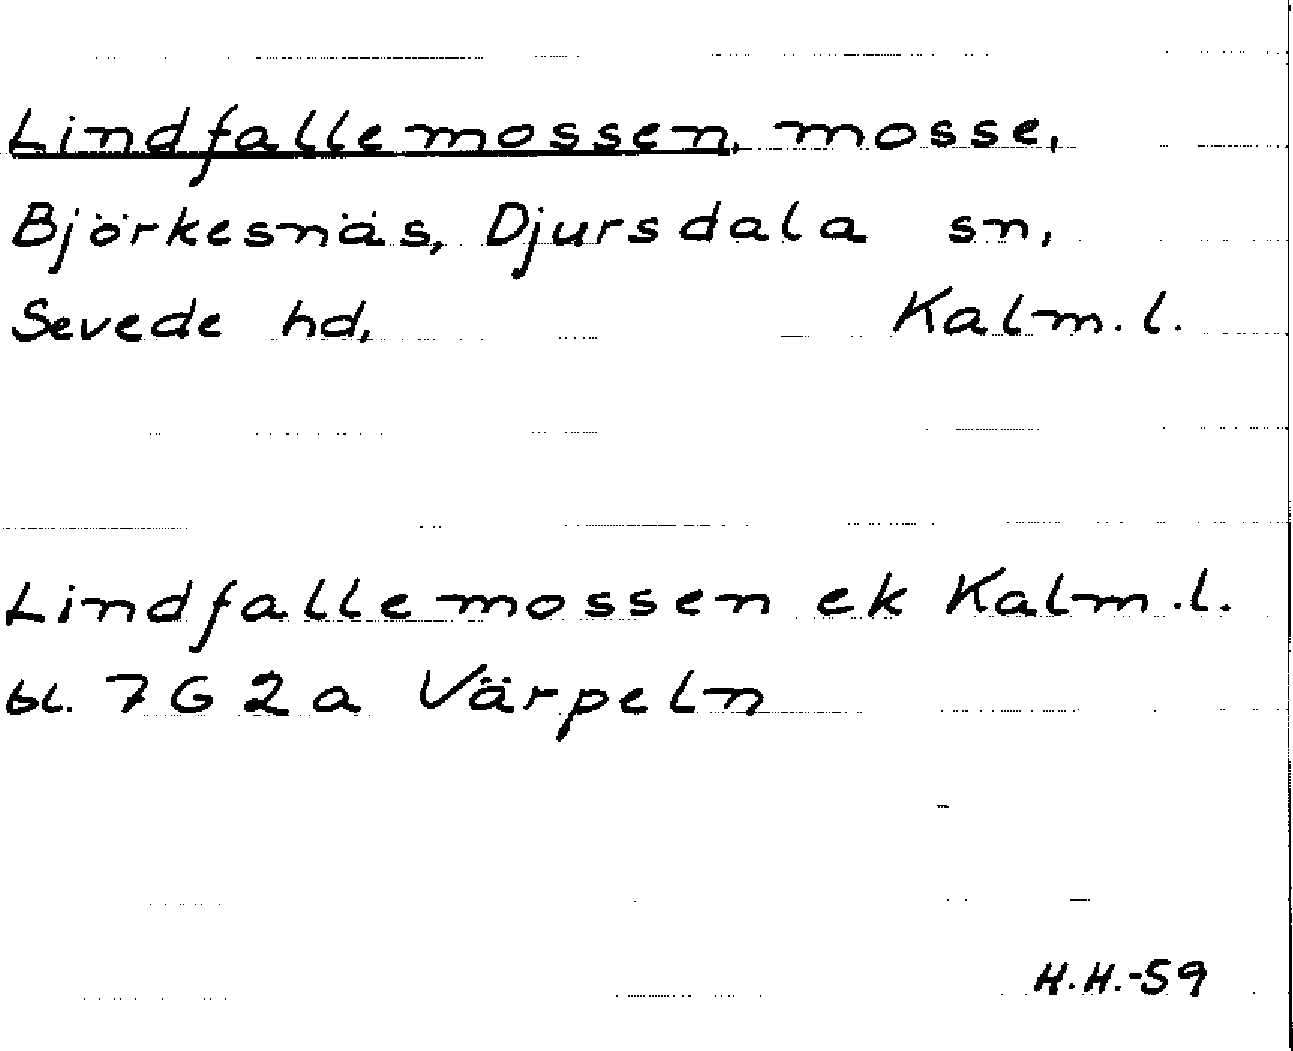 Lindfallemossen, mosse,
Björkesnäs, Djursdala sn,
Sevede hd, Kalm.l.
Lindfallemossen ek Kalm.l.
bl. 7G2a Värpeln
H.H.-59